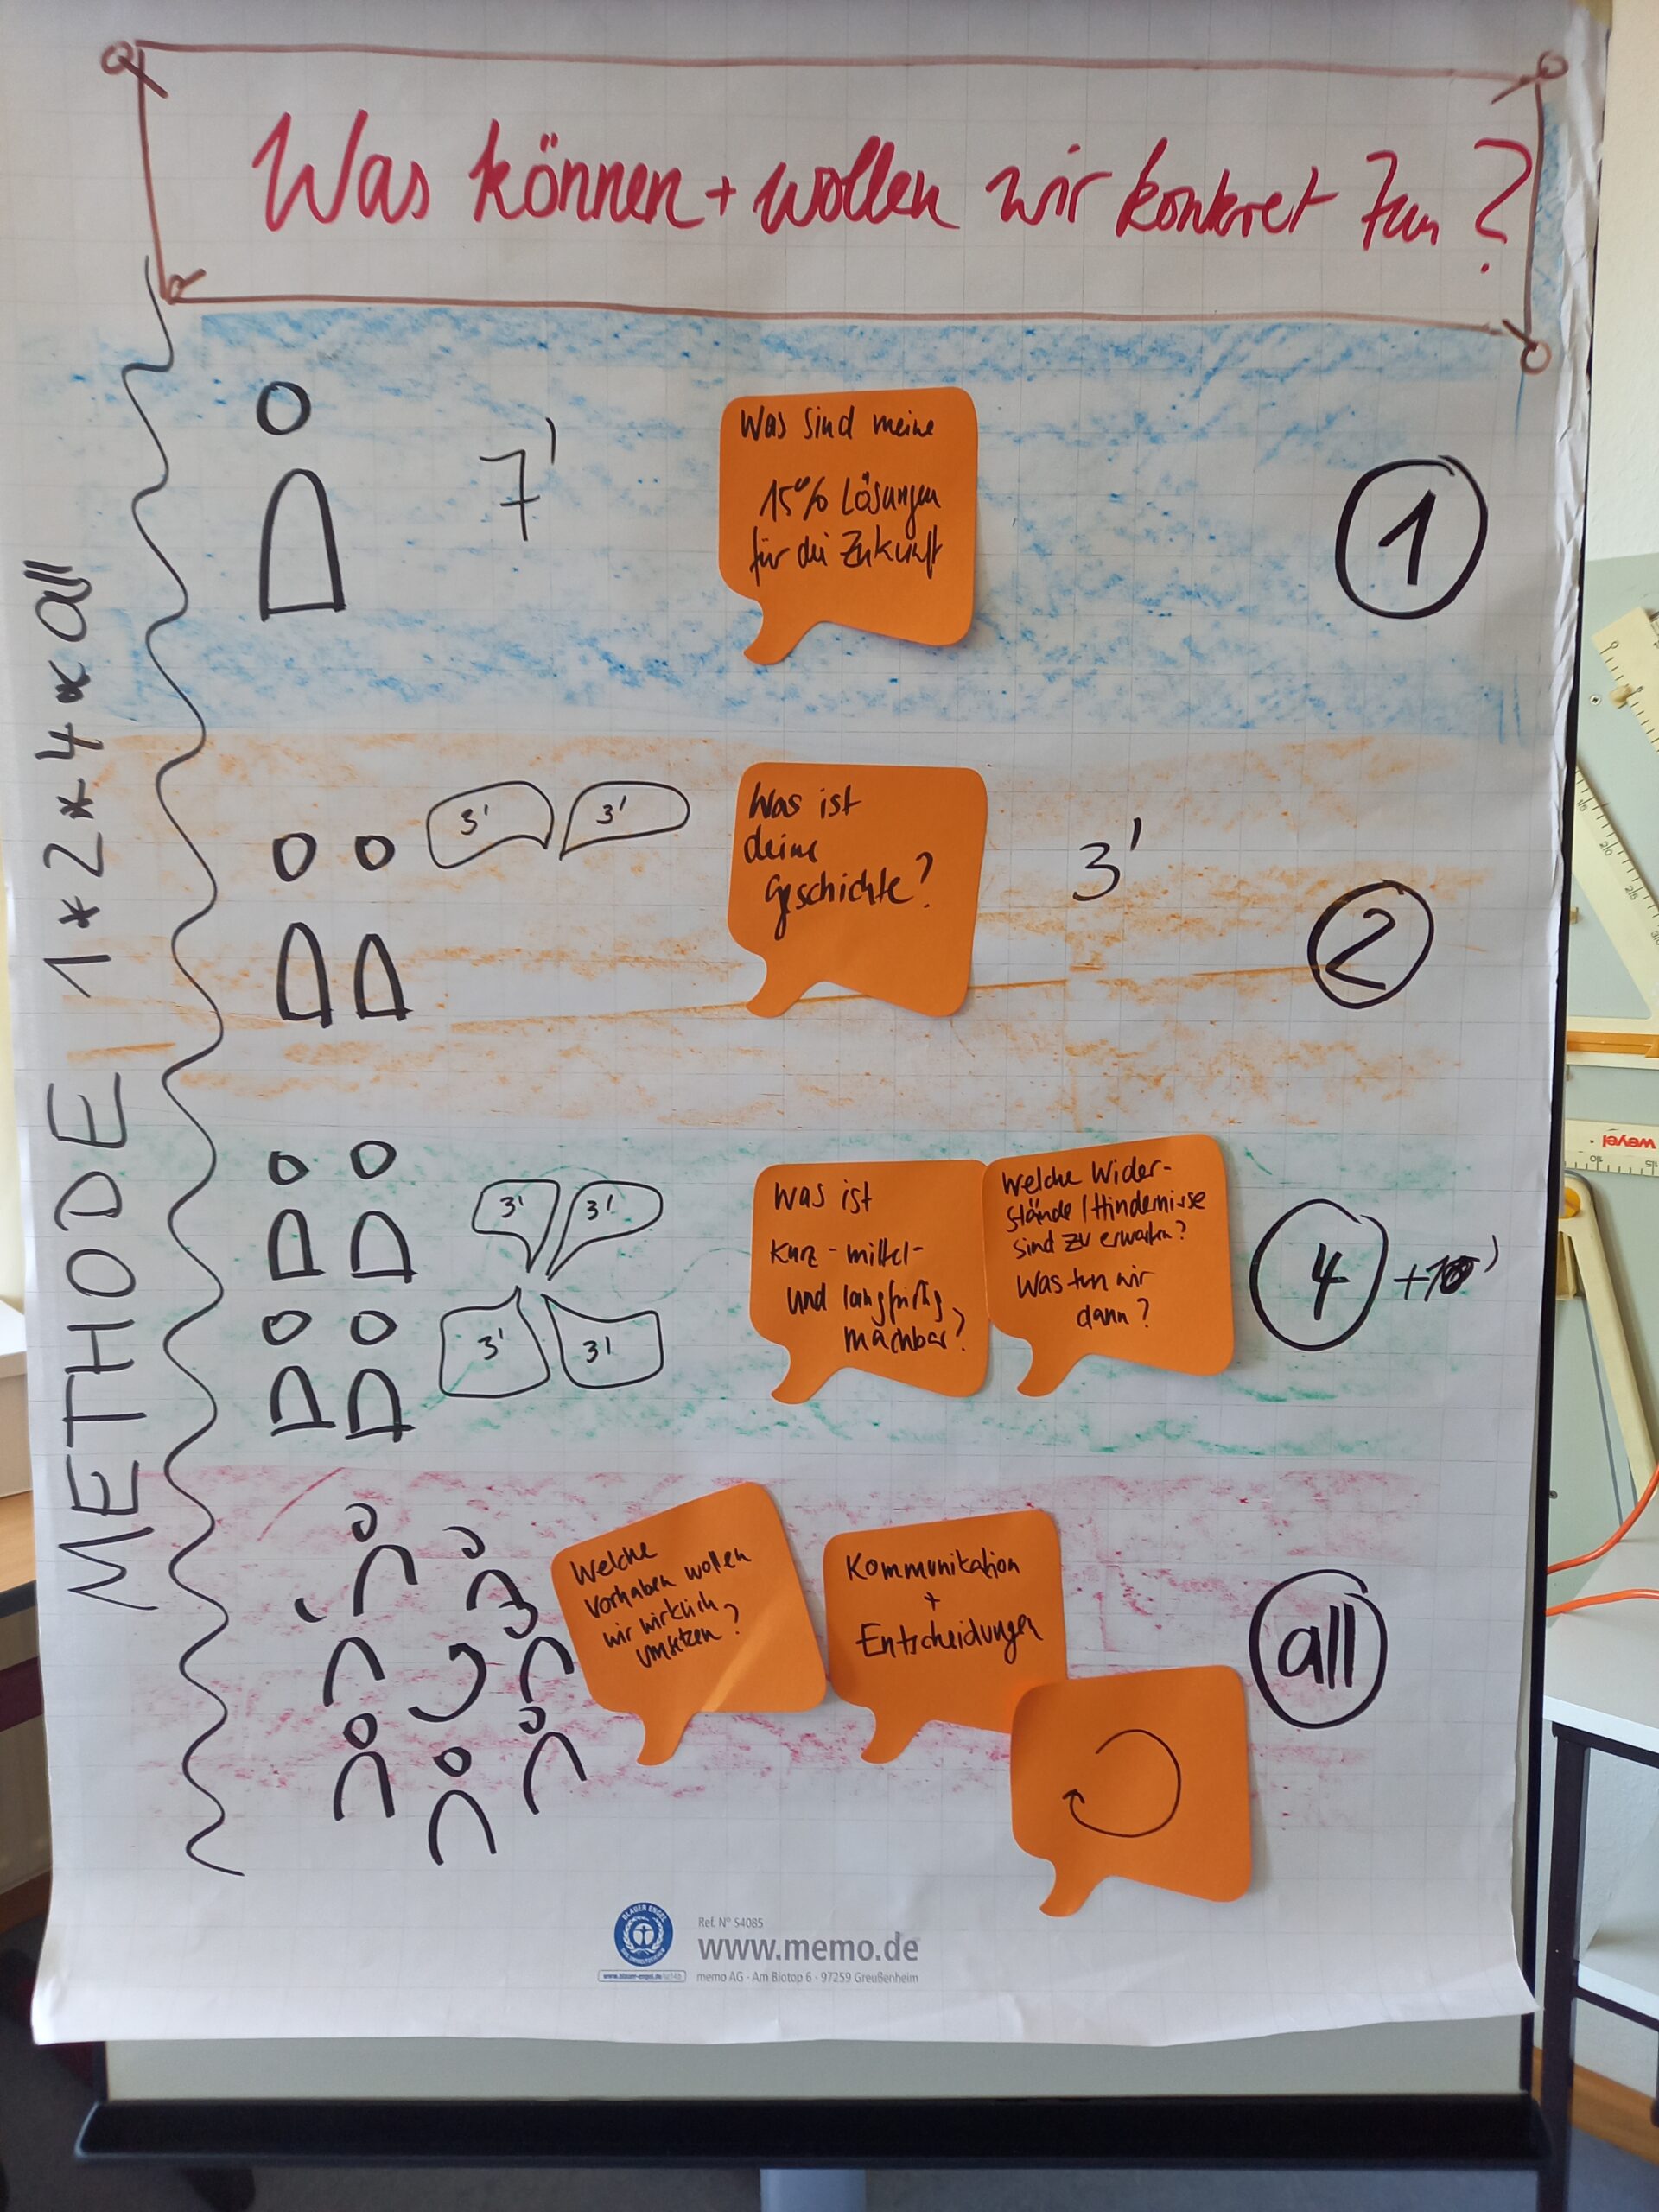 Was können + wollen wir konkret tun?
METHODE 1*2*4*all
7'
Was sind meine
15% Lösungen
für die Zukunft
1
3'
3'
Was ist
deine
Geschichte?
3'
2
3'
3'
3'
3'
Was ist
kurz-mittel-
und langfristig
machbar?
Welche Wider-
stände/Hindernisse
sind zu erwarten?
Was tun wir
dann?
4
Welche
Vorhaben wollen
wir wirklich
umsetzen?
Kommunikation
+
Entscheidungen
all
BLAUER ENGEL
DAS UMWELTZEICHEN
www.blauer-engel.de/uz14b
Ref. N° S4085
www.memo.de
memo AG · Am Biotop 6 · 97259 Greußenheim
weyel